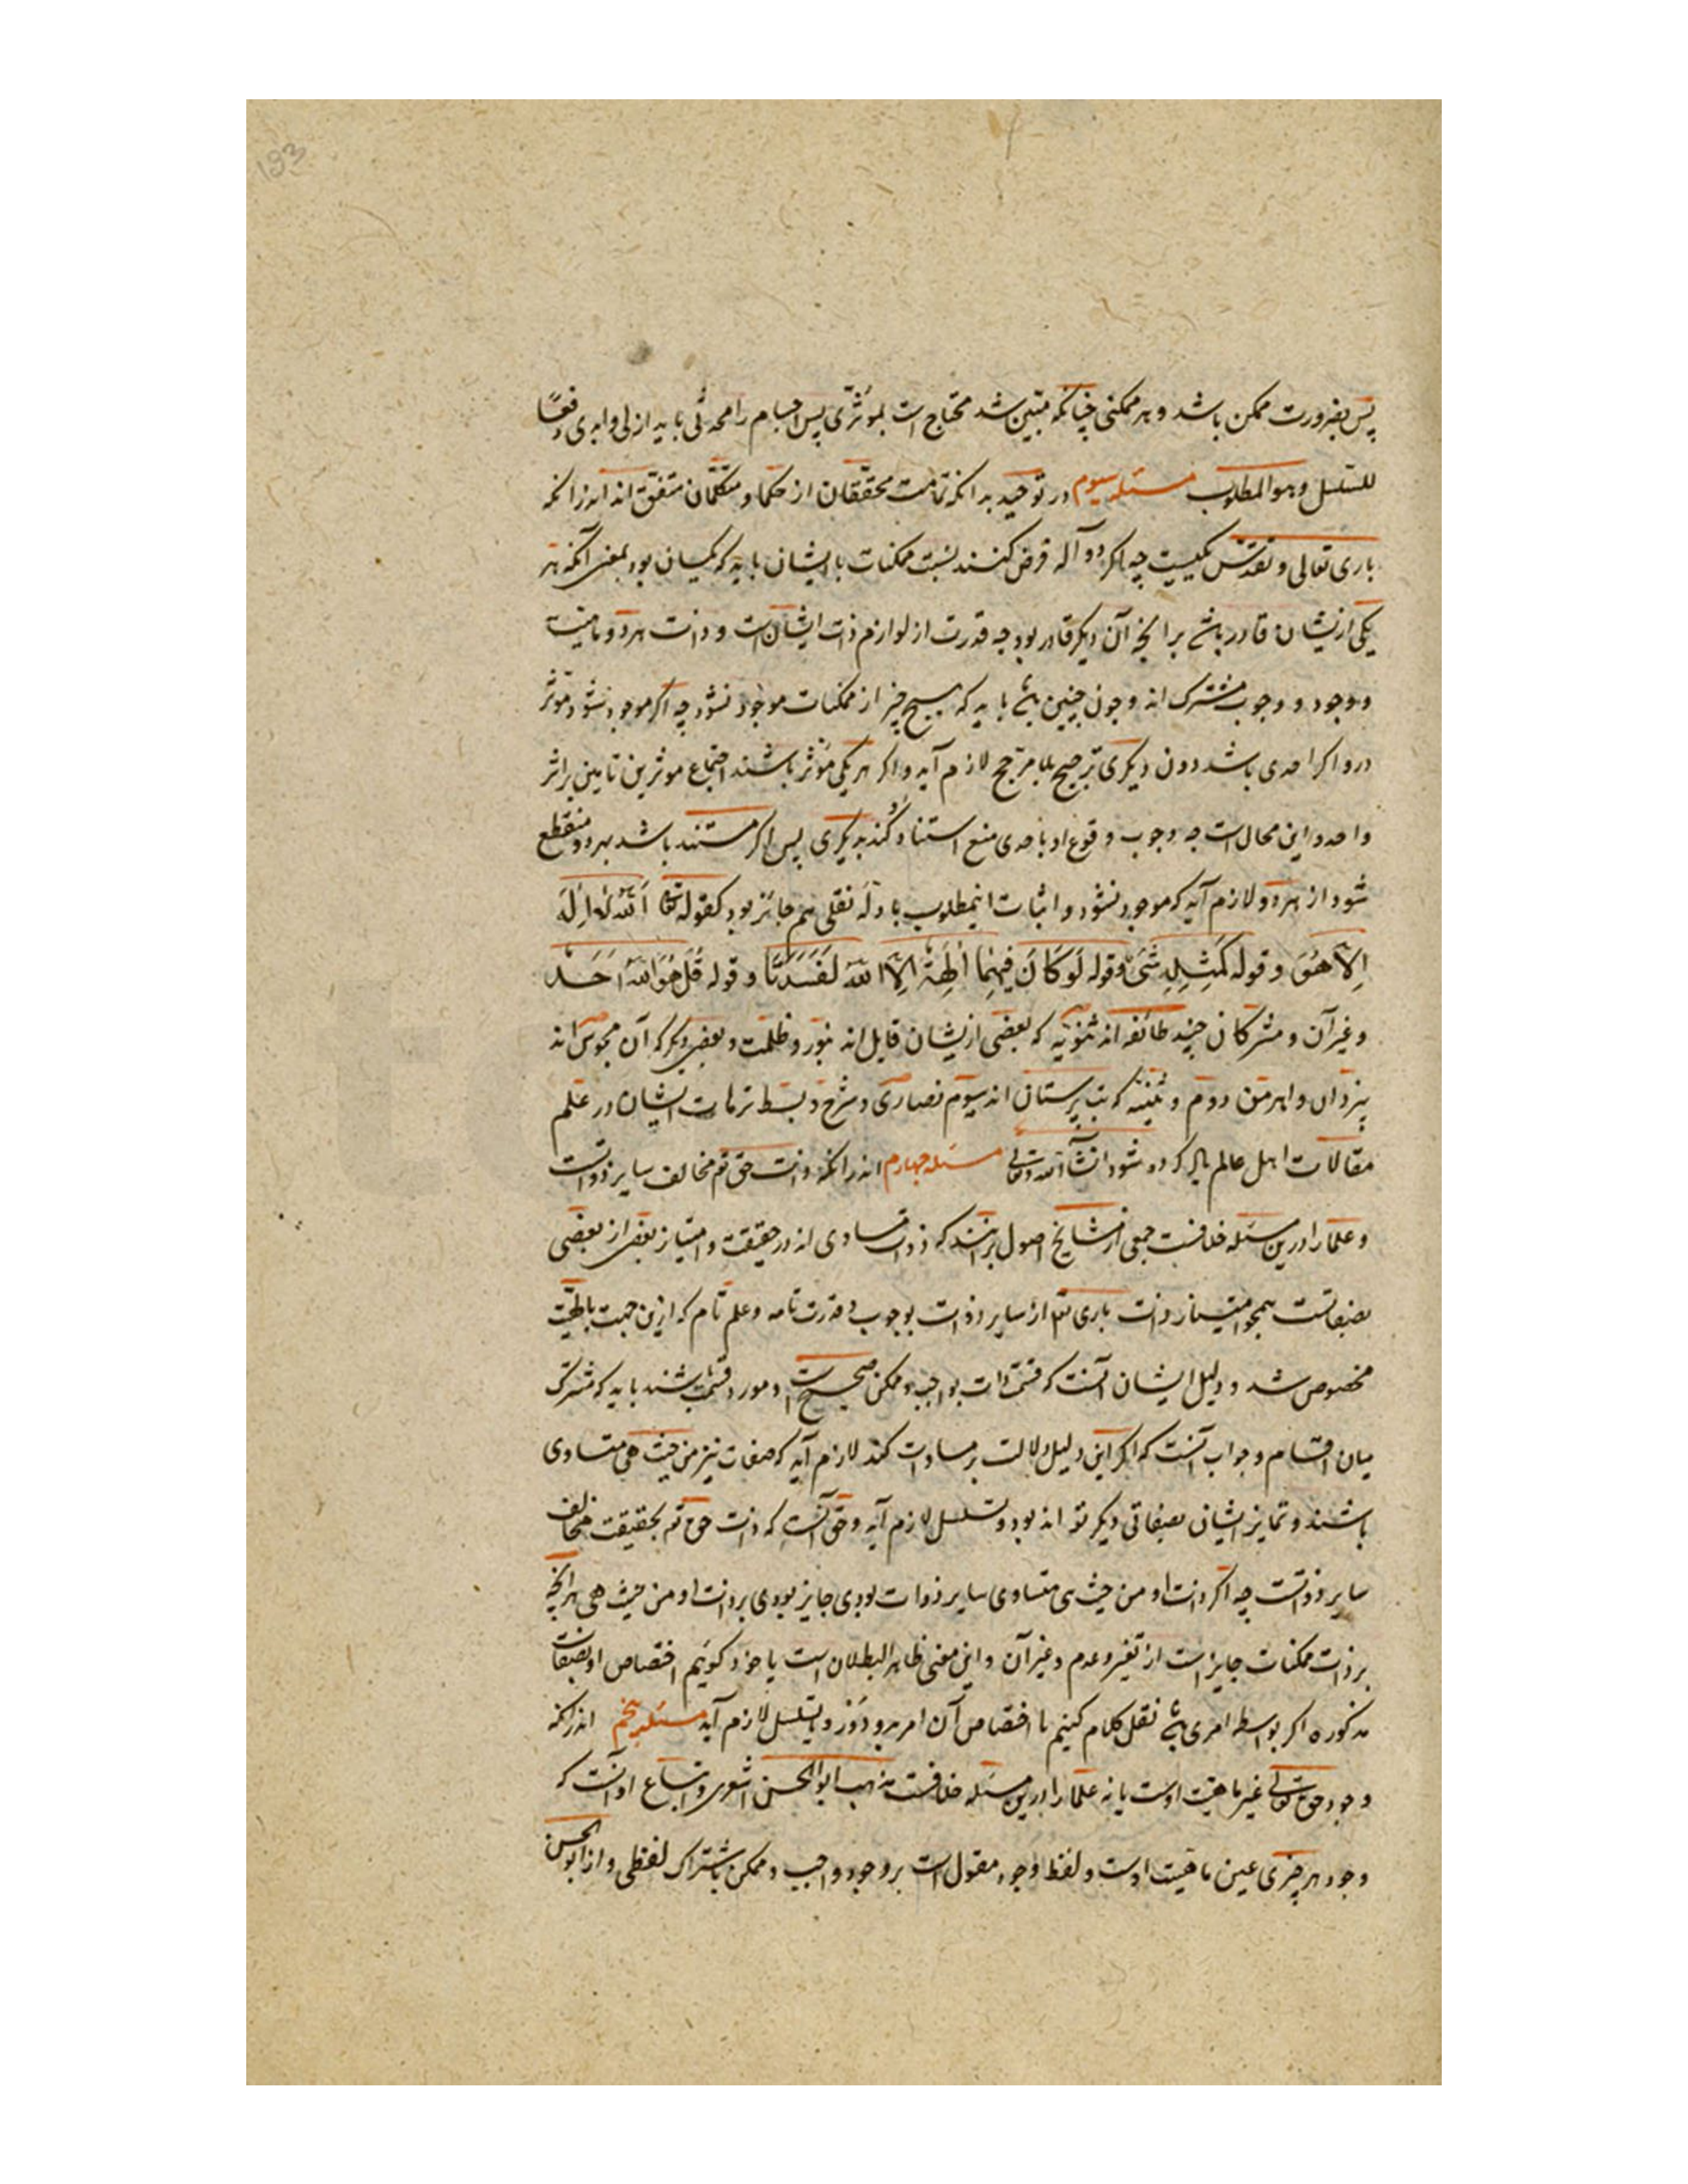 193
پس بضرورت ممکن باشد و هر ممکنی چنانکه مبین شد محتاج است بموثّری پس اجسام را محدثی باید ازلی و ابدی دفعًا
للتسلسل وهو المطلوب مسئله سیوم در توحید بدانکه تمامت محققان از حکما و متکلمان متفق اند اندرانکه
باری تعالی و تقدس یکیست چه اگر دو آله فرض کنند نسبت ممکنات با ایشان باید که یکسان بود بمعنی آنکه هر
یکی ازیشان قادر باشد برانچه آن دیگر قادر بود چه قدرت از لوازم ذات ایشان است و ذات هر دو ماهیت
و وجود و وجوب مشترک اند و چون چنین باشد باید که هیچ چیز از ممکنات موجود نشود چه اگر موجود شود موثر
درو اگر احدی باشد دون دیگری ترجیح بلا مرجح لازم آید و اگر هر یکی مؤثر باشند اجتماع موثرین تامین بر اثر
واحد و این محال است چه وجوب وقوع او باحدی منع استناد او کند بدیگری پس اگر مستند باشد بهر دو منقطع
شود از هر دو و لازم آید که موجود نشود و اثبات اینمطلوب بادله نقلی هم جائز بود کقوله تعالی اَللّٰه لا اِلٰهَ
اِلّا هُوَ و قوله کَمِثْلِهِ شَیْ وقوله لَوکَانَ فِیهِمَا اٰلِهَةٌ اِلّا اللّٰهَ لَفَسَدَتَا و قوله قُل هُوَ اللّٰه اَحَد
و غیر آن و مشرکان چند طائفه اند ثنویه که بعضی ازیشان قایل اند بنور و ظلمت و بعضی دیگر که آن مجوس اند
بیزدان و اهرمن دوم وثنیه که بت پرستان اند سیوم نصاری و شرح و بسط ترهات ایشان در علم
مقالات اهل عالم یاد کرده شود انشآ الله تعالی مسئله چهارم اندرانکه ذات حق تع مخالف سایر ذواتست
و علما را درین مسئله خلافست جمعی از مشایخ اصول برانند که ذوات متساوی اند در حقیقت و امتیاز بعضی از بعضی
بصفاتست همچو امتیاز ذات باری تع از سایر ذوات بوجوب و قدرت تامه و علم تام که ازین جهت بالهیّت
مخصوص شد و دلیل ایشان آنست که قسمت ذات بواجب و ممکن صحیح است و مورد قسمت باید که مشترک
میان اقسام و جواب آنست که اگر این دلیل دلالت بر مساوات کند لازم آید که صفات نیز من حیث هی متساوی
باشند و تمایز ایشان بصفاتی دیگر تواند بود و تسلسل لازم آید و حق آنست که ذات حق تع بحقیقت مخالف
سایر ذواتست چه اگر ذات او من حیث هی متساوی سایر ذوات بودی جایز بودی بر ذات او من حیث هی هر انچه
بر ذات ممکنات جایز است از تغیر و عدم و غیر آن و این معنی ظاهر البطلان است یا خود گوییم اختصاص او بصفات
مذکوره اگر بواسطه امری باشد نقل کلام کنیم با اختصاص آن امر بدو و دَور و یا تسلسل لازم آید مسئله پنجم اندرانکه
وجود حق تعالی غیر ماهیت اوست یا نه علما را درین مسئله خلافست مذهب ابوالحسن اشعری و اتباع او آنست که
وجود هر چیزی عین ماهیت اوست و لفظ وجود مقول است بر وجود واجب و ممکن باشتراک لفظی و از ابوالحسن